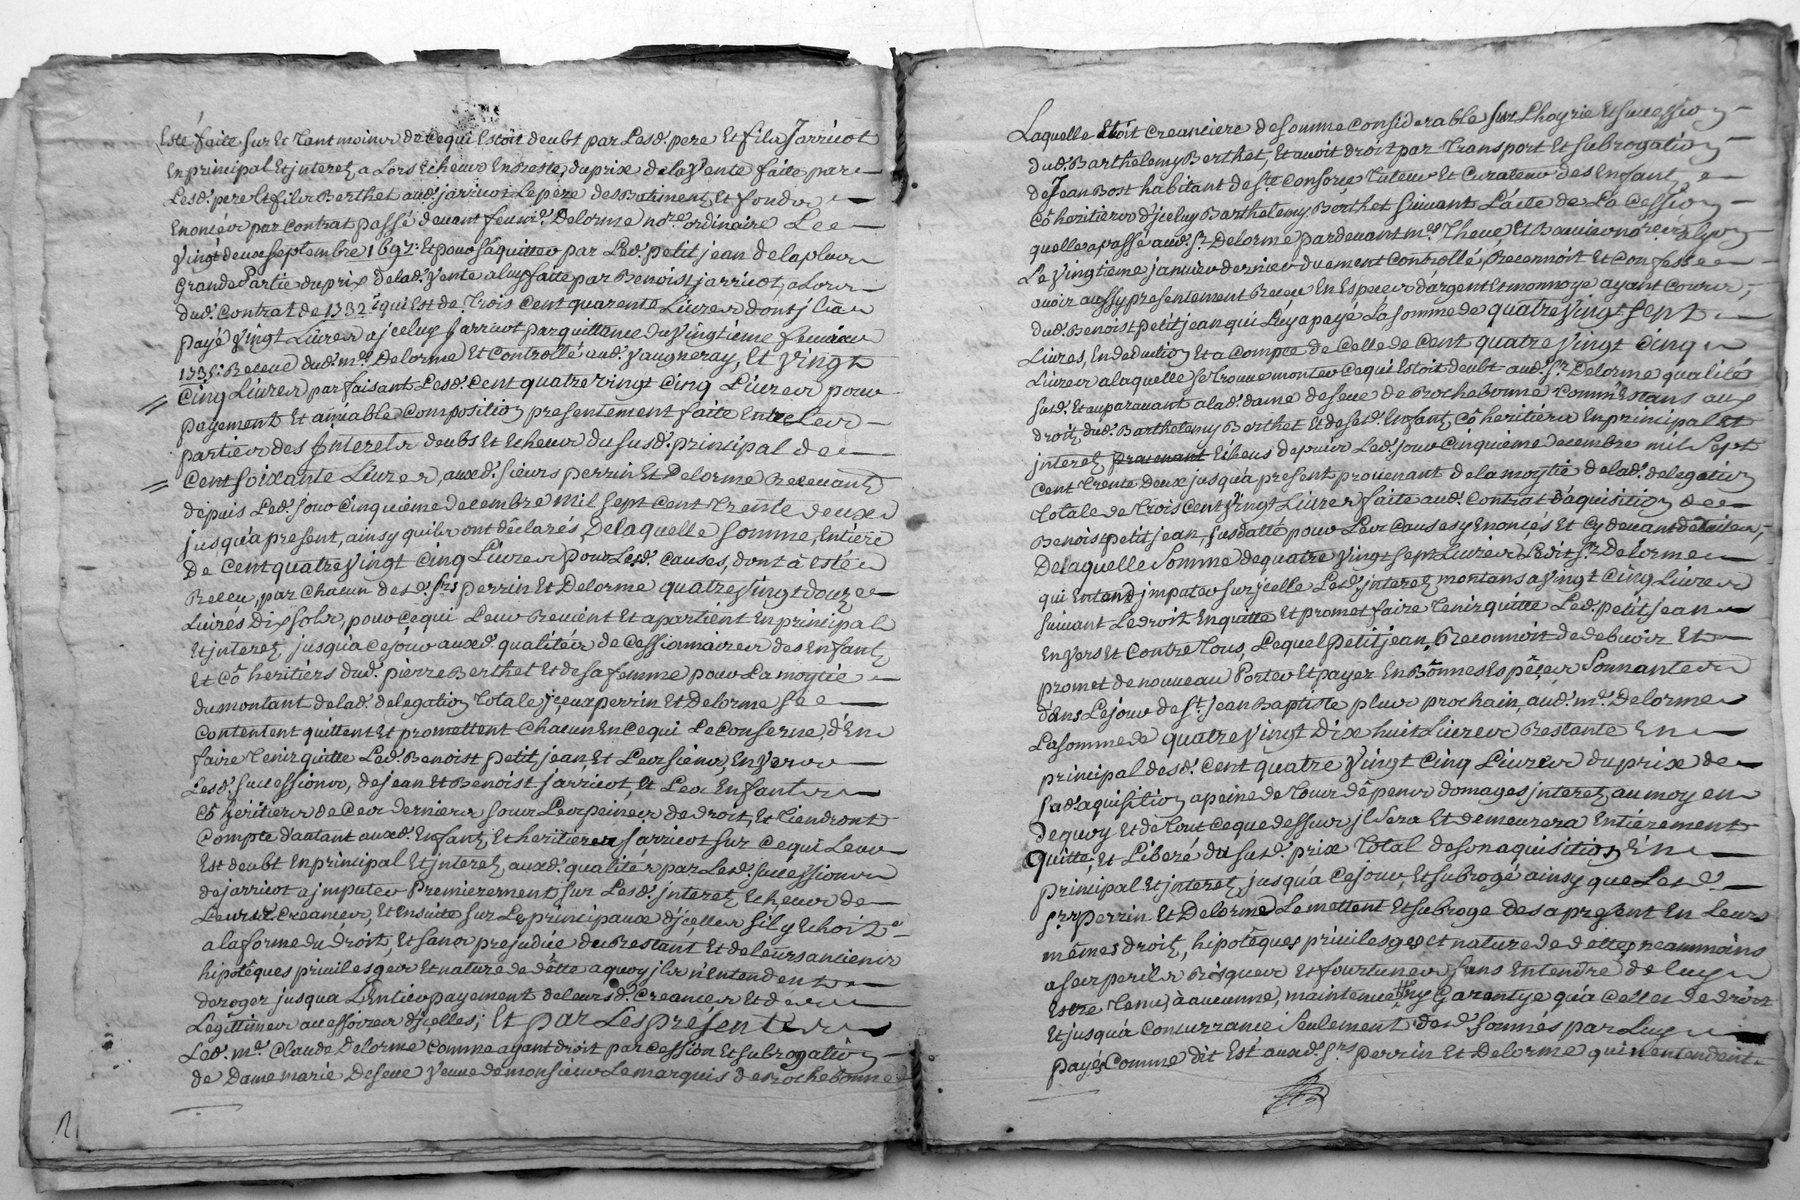 Esté faite sur Et Tant moins de ce qui Estoit deubt par Lesd. pere Et fils Jarricot
En principal Et jnterez a Lors Echeus En Reste, du prix de la Vente faite par
Lesd. pere Et fils Berthet aud. jarricot Le pere des Batiments Et fonds
Enoncés par contrat passé devant feu me. Delorme nore. ordinaire Le
Vingt deux septembre 1697. Et pour s'aquitter par Led. petit jean de la plus
grande Partie du prix de lad. Vente a luy faite par Benoist jarricot, alors
dud. Contrat de 1732 qui Est de Trois Cent quarente Livres dont jl a
payé Vingt Livres a jceluy Jarricot par quittance du Vingtieme fevrier
1735. Receue dud. me. Delorme Et Controllé aud. Vaugneray, Et Vingt
Cinq Livres parfaisant Lesd. Cent quatre vingt Cinq Livres pour
payement Et amiable Composition presentement faite Entre Les
parties des Jnterets deubs Et Echeus du susd. principal de
Cent soixante Livres, auxd. sieurs perrin Et Delorme Recevants
depuis Led. jour Cinquieme decembre Mil sept cent Trente deux
jusqu'a present, ainsy quils ont déclarés, De laquelle somme Entiere
De Cent quatre Vingt Cinq Livres pour Lesd. Causes, dont a Esté
Receu par Chacun desd. srs perrin Et Delorme quatre Vingt douze
Livres Dix sols, pour ce qui Leur Revient Et apartient En principal
Et jnterez, jusqu'a ce jour auxd. qualités de Cessionnaires des Enfantz
Et Cô heritiers dud. pierre Berthet Et de sa femme pour La moytié
du montant de lad. delegation Totale jceux perrin Et Delorme se
Contentent quittent Et promettent Chacun En ce qui Le Conserne, d'En
faire Tenir quitte Led. Benoist Petit jean, Et Les siens, Envers
Lesd. successions, de jean Et Benoist jarricot, Et Les Enfants
Cô heritiers de Ces derniers sous Les peines de droit, Et Tiendront
Compte d'autant auxd. Enfantz, Et heritiers Jarricot sur ce qui Leur
Est deubt En principal Et jnterez auxd. qualités par Lesd. successions
de jarricot a jmputer Premierement sur Lesd. jnterez Echeus de
Leursd. Creances, Et Ensuite sur Les principaux d'jcelles s'il y Echoit
a la forme du droit, Et sans prejudice du Restant Et de leurs anciens
hipotêques privilesges Et nature de dêtte a quoy jls n'Entendent
deroger jusqu'a L'Entier payement de leursd. Creances Et de
Legittimes accessoires d'jcelles; Et par Les présentes
Led. me. Claude Delorme Comme ayant droit par cession Et subrogation
de Dame marie Deseve Veuve de monsieur Le marquis de Rochebonne
Laquelle Etoit Creanciere de somme considerable sur L'hoyrie Et succession
dud. Barthelemy Berthet, Et avoit droit par Transport Et subrogation
de Jean Bost habitant de Ste Consorce Tuteur Et Curateur des Enfantz
Cô heritiers d'jceluy Barthelemy Berthet suivant L'acte de La Cession
quelle a passé aud. sr. Delorme pardevant mes. Theve, Et Bavier nores. a Lyon
Le Vingtieme janvier dernier duement Controllé, Reconnoit Et Confesse
avoir aussy presentement Receu En Especes d'argent Et monnoye ayant Cours,
dud. Benoist Petit jean qui Luy a payé La somme de quatre Vingt sept
Livres, En deduction Et a Compte de Celle de Cent quatre Vingt Cinq
Livres a laquelle se Trouve monter ce qui Estoit deubt aud. sr. Delorme qualité
susd. Et auparavant a lad. dame deseve de Rochebonne Comm'Estans aux
droitz dud. Barthelemy Berthet Et desd. Enfantz Cô heritiers En principal Et
jnterez provenant Echeus depuis Led. jour Cinquieme decembre mil sept
Cent Trente deux jusqu'a present provenant de la moytié de lad. delegation
Totale de Trois Cent Vingt Livres faite aud. Contrat d'aquisition de
Benoist petit jean, susdatté pour Les Causes y Enoncés Et Cy devant detailés,
De laquelle Somme de quatre Vingt sept Livres Ledit sr. Delorme
qui Entend jmputer sur jcelle Lesd. jnterez montans a Vingt Cinq Livres
suivant Le droit En quitte Et promet faire Tenir quitte Led. petit jean
Envers Et Contre Tous, Lequel petit jean, Reconnoit de debvoir Et
promet de nouveau Porter Et payer En Bônnes Espêces Sonnantes
dans Le jour de st. jean Baptiste plus prochain, aud. me. Delorme
La somme de quatre Vingt Dix huit Livres Restante En
principal desd. Cent quatre Vingt Cinq Livres du prix de
sad. aquisition a peine de Tous dêpens domages jnterez, au moyen
de quoy Et de Tout ce que dessus jl sera Et demeurera Entierement
quitte, Et Liberé du susd. prix Total de son aquisition En
principal Et jnterez, jusqu'a ce jour, Et subrogé ainsy que Lesd.
srs Perrin Et Delorme Le mettent Et subroge des a present En Leurs
mêmes droitz, hipotêques privilesges et nature de dettes neanmoins
a ses perils Risques Et fourtunes, sans Entendre de luy
Estre Tenu, à aucunne, maintenue ny Garentye qu'a Celles de droit
Et jusqu'a Concurrance seulement desd. sommés par Luy
payés Comme dit Est auxd. srs perrin Et Delorme qui n'entendent